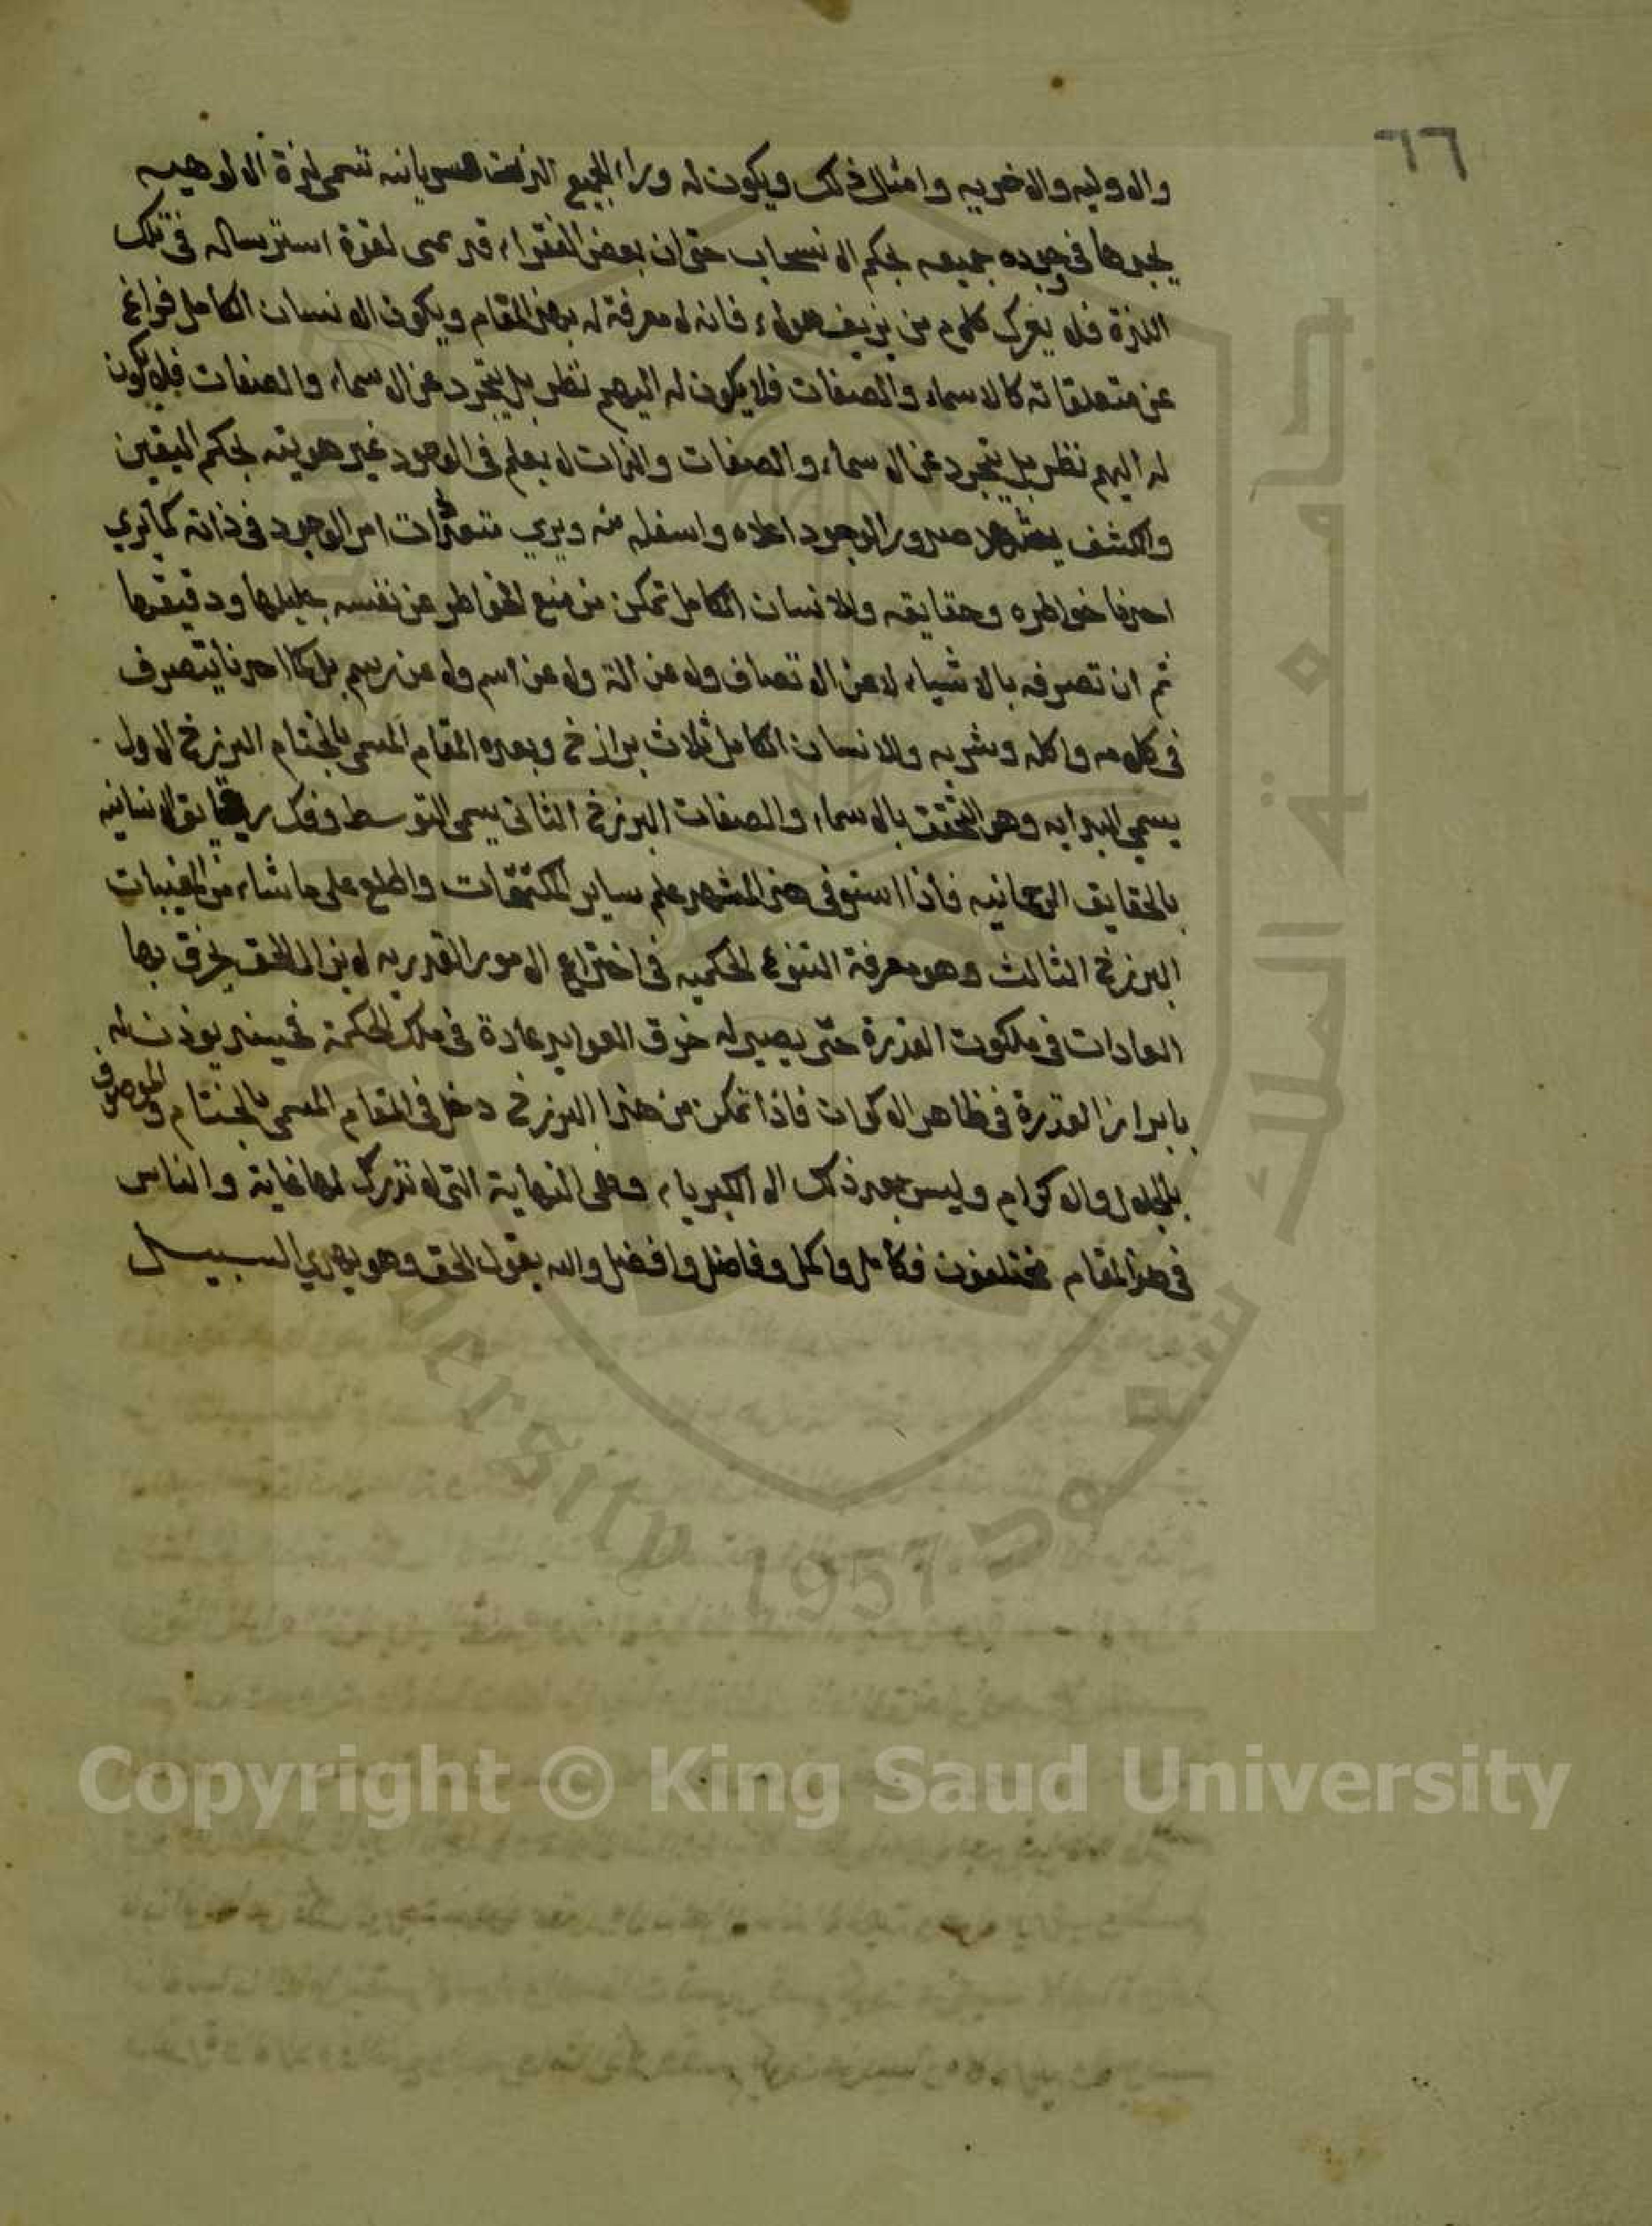 ٦٦
والاوليه والاخريه وامثال ذلك ويكون له وراء الجميع لذة سريانيه تسمى لذة الالوهيه
يجدها فى وجوده جميعه بحكم الانسحاب حتى ان بعض الفقراء قد تمنى لقوة استرساله فى تلك
اللذة فلا يغرك كلام من يزيف هولاء فانه لا معرفة له بهذا المقام ويكون الانسان الكامل فراغ
عن متعلقاته كالاسماء والصفات فلا يكون له اليهم نظر بل يتجرد عن الاسماء والصفات فلا يكون
له اليهم نظر بل يتجرد عن الاسماء والصفات والذات لا يعلم فى الوجود غير هويته بحكم اليقين
والكشف يشهد صدور الوجود اعلاه واسفله منه ويري متعددات امر الوجود فى ذاته كما يري
احدنا خواطره وحقايقه وللانسان الكامل تمكن من منع الخواطر عن نفسه جليلها ودقيقها
ثم ان تصرفه بالاشياء لا عن اتصاف ولا عن الة ولا عن اسم ولا عن رسم بل كما احدنا يتصرف
فى كلامه واكله وشربه وللانسان الكامل ثلاث برازخ وبعده المقام المسمى بالختام البرزخ الاول
يسمي البدايه وهو التحقق بالاسماء والصفات البرزخ الثانى يسمى التوسط وفك رقايق الانسانيه
بالحقايق الرحمانيه فاذا استوفى هذا المشهد علم ساير المكتمات واطلع على ماشاء من المغيبات
البرزخ الثالث وهو معرفة التنوع الحكميه فى اختراع الامور القدريه لا يزال الحق يخرق بها
العادات فى ملكوت القدرة حتى يصير له خرق العوايد عادة فى ملك الحكمة فحينئذ يوذن له
بابراز القدرة فى ظاهر الاكوان فاذا تمكن من هذا البرزخ دخل فى المقام المسمى بالختام والموصوف
بالجلال والاكرام وليس بعد ذلك الا الكبرياء وهى النهاية التى لا تدرك لها غاية والناس
فى هذا المقام مختلفون فكامل واكمل وفاضل وافضل والله يقول الحق وهو يهدي السبيل
جامعة الملك سعود
University
1957
Copyright © King Saud University